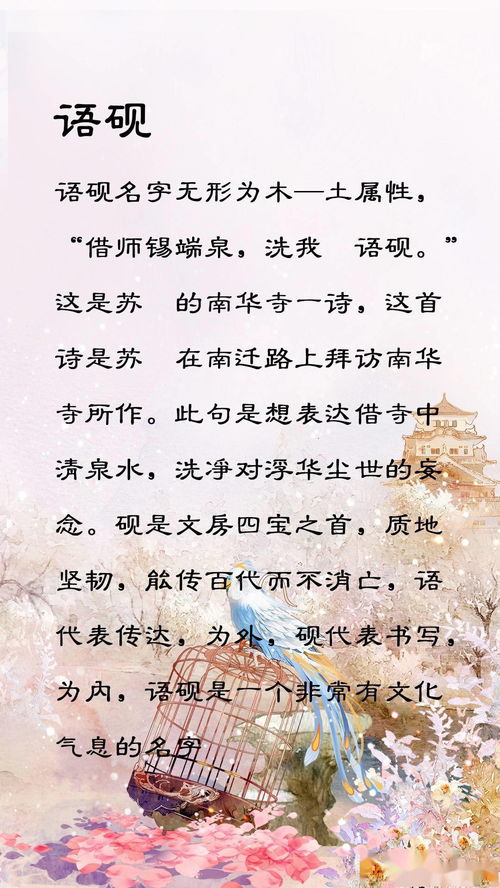 语砚
语砚名字无形为木—土属性，
“借师锡端泉，洗我 语砚。”
这是苏 的南华寺一诗，这首
诗是苏 在南迁路上拜访南华
寺所作。此句是想表达借寺中
清泉水，洗净对浮华尘世的妄
念。砚是文房四宝之首，质地
坚韧，能传百代而不消亡，语
代表传达，为外，砚代表书写，
为内，语砚是一个非常有文化
气息的名字